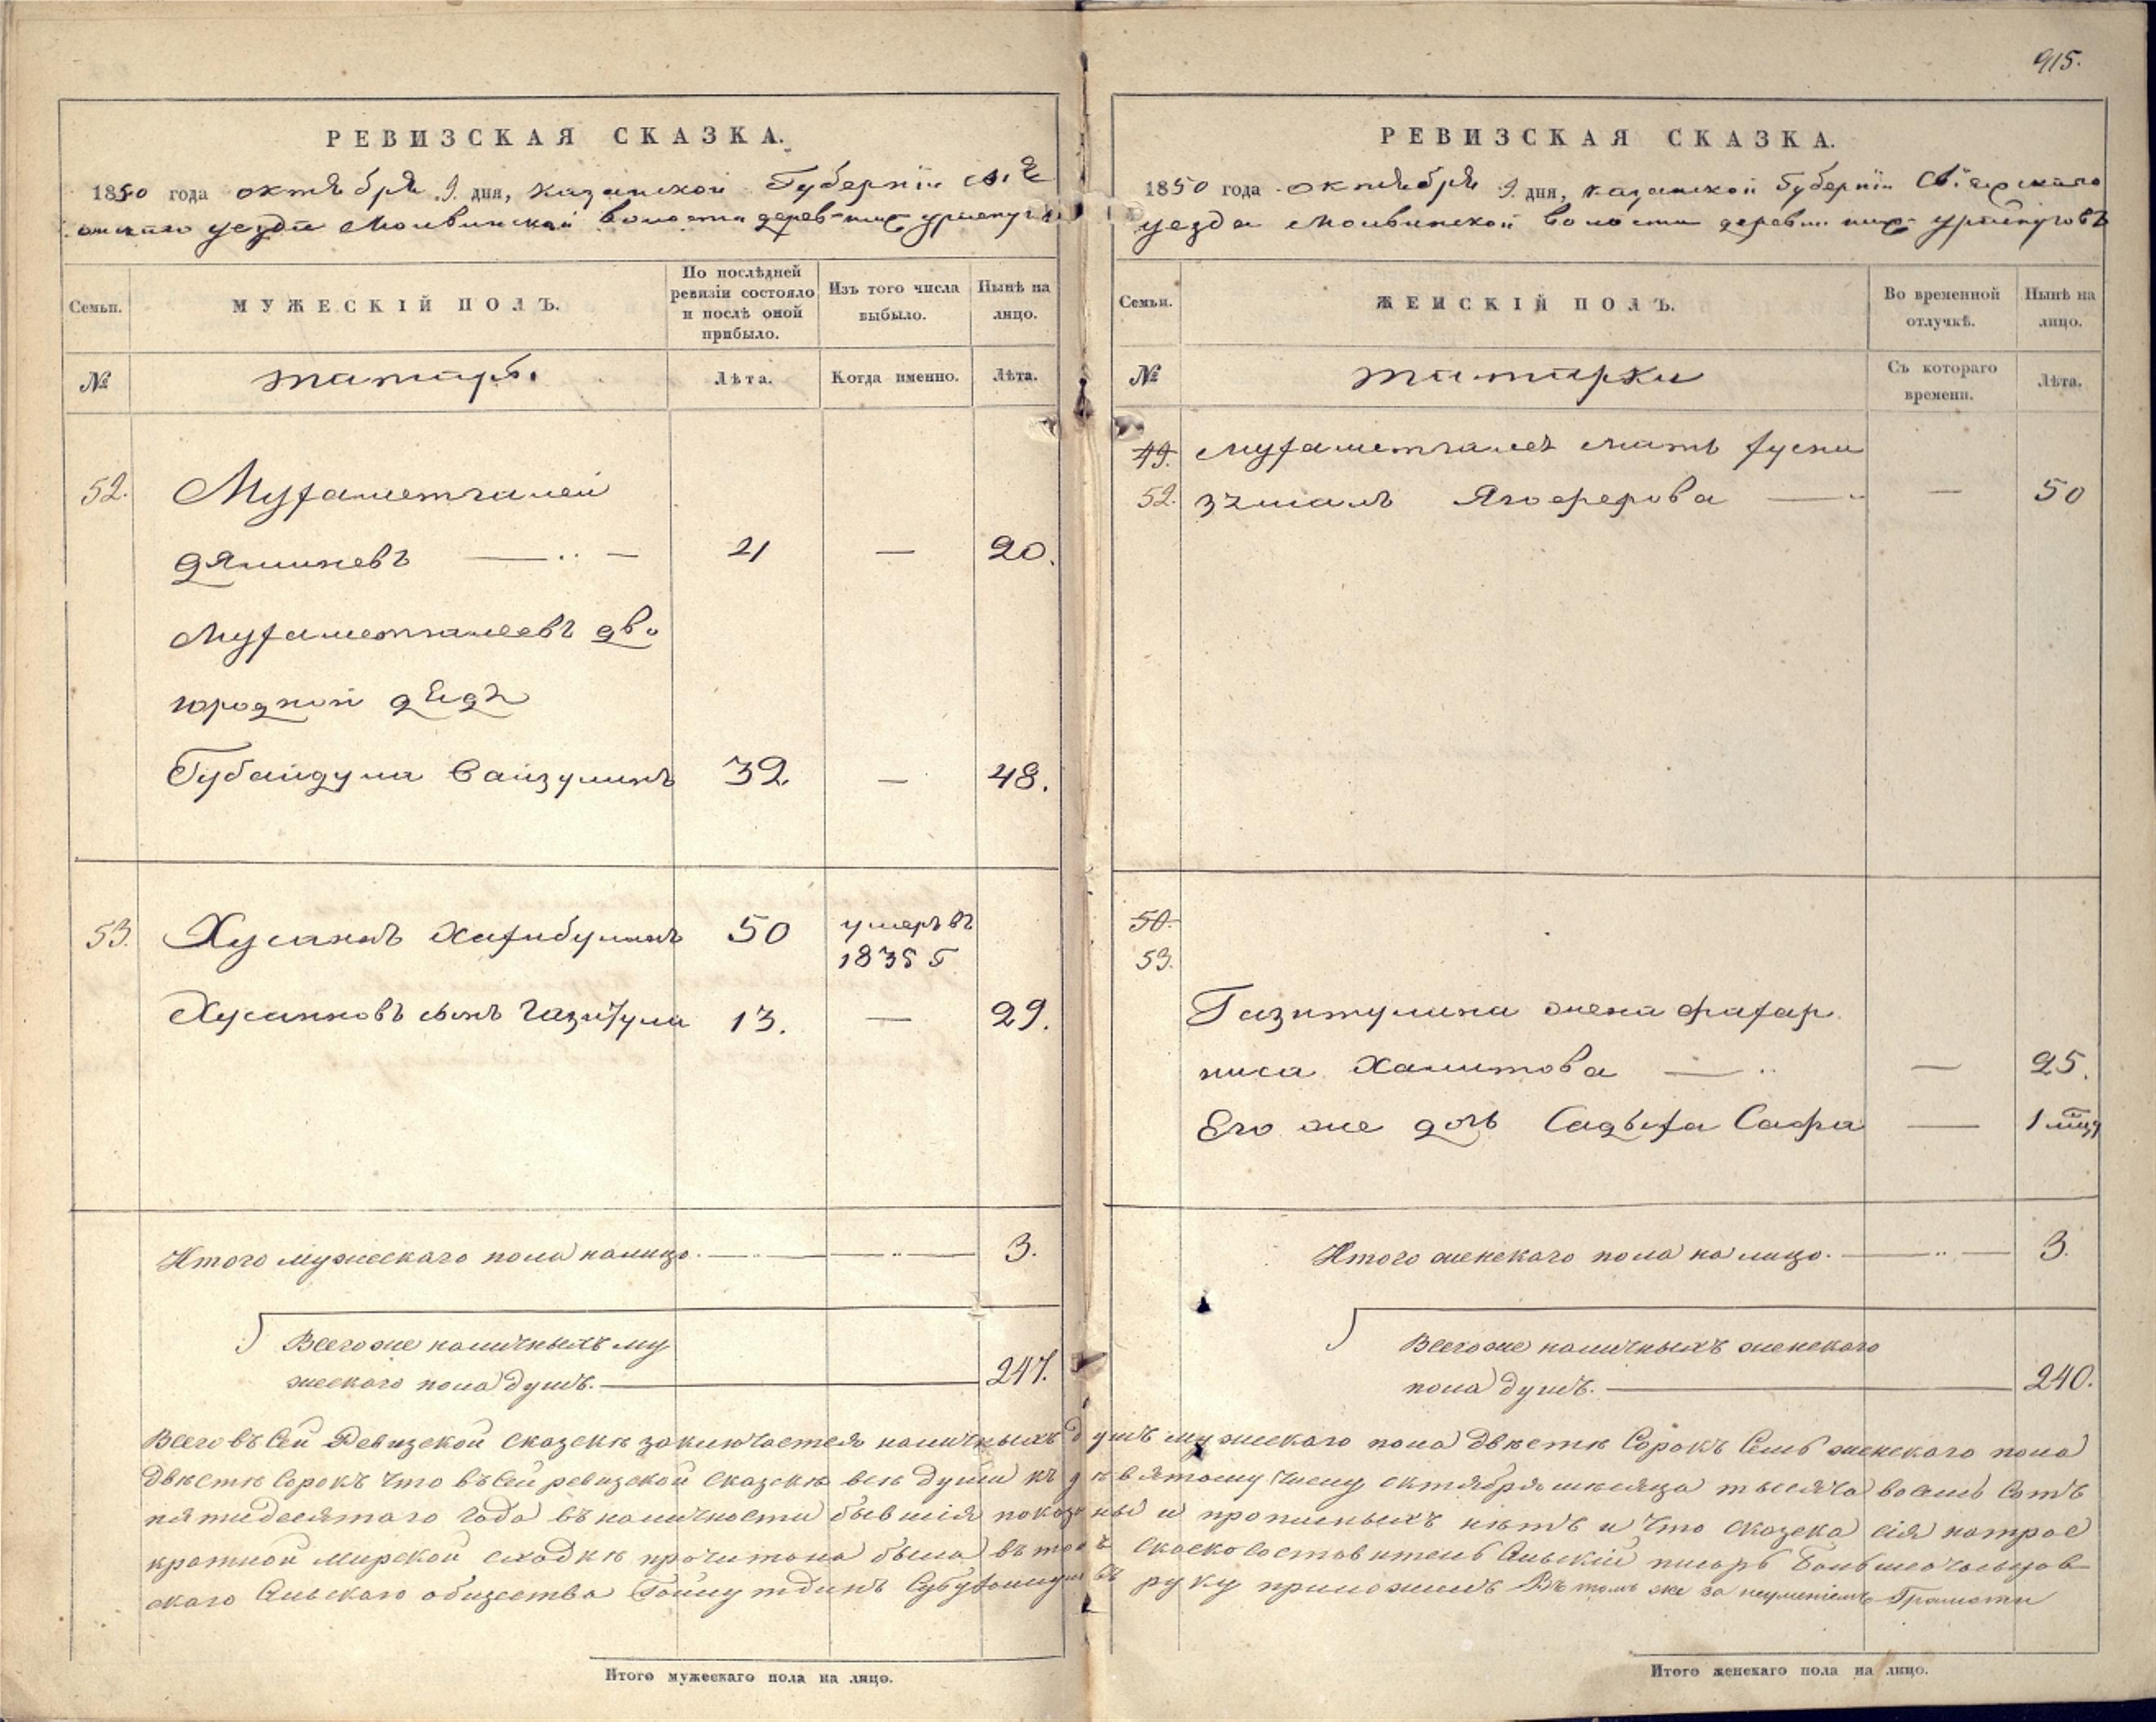 915.
РЕВИЗСКАЯ СКАЗКА.
1850 года октября 9 дня, Казанской Губернiи Свiя
жскаго уезда Молвинской волости дерев
Семьи.
МУЖЕСКІЙ ПОЛЪ.
По послѣдней ревизіи состояло и послѣ оной прибыло.
Изъ того числа выбыло.
Нынѣ на лицо.
№
татары
Лѣта.
Когда именно.
Лѣта.
52. Мухаметгалей
21 — 20.
Мухаметгалеевъ дво
юродной дядя
Губайдула Сайзулинъ 32 — 48.
53. Хусаинъ Хабибулинъ 50 умеръ въ
1835 г
Хусаиновъ сынъ Газитула 13. — 29.
Итого мужескаго пола налицо. 3.
Всегоже наличныхъ му
жескаго пола душъ. 247.
РЕВИЗСКАЯ СКАЗКА.
1850 года октября 9 дня, Казанской Губернiи Свiяжскаго
уезда Молвинской волости деревни
Семьи.
ЖЕНСКІЙ ПОЛЪ.
Во временной отлучкѣ.
Нынѣ на лицо.
№
татарки
Съ котораго времени.
Лѣта.
49. Мухаметгалея мать Хусни
52. зямалъ Ягоферова — 50
50.
53.
Газитулина жена Фахар
ниса Хамитова — 25.
Его же дочь Садыха Сафа — 1 мцъ
Итого женскаго пола на лицо. 3.
Всегоже наличныхъ женскаго
пола душъ. 240.
Всего въ сей Ревизской сказкѣ заключается наличныхъ душъ мужескаго пола двѣстѣ сорокъ семь женскаго пола
двѣстѣ сорокъ что въ сей ревизской сказкѣ всѣ души къ девятому числу октября мѣсяца тысяча восемь сотъ
пятидесятаго года въ наличности бывшiя показаны и прописныхъ нѣтъ и что сказка сiя на трое
кратной мирской сходкѣ прочитана была въ томъ сказкосоставитель сельскiй писарь
скаго сельскаго общества руку приложилъ Въ томъ же за неумѣнiемъ Грамоты
Итого мужескаго пола на лицо.
Итого женскаго пола на лицо.